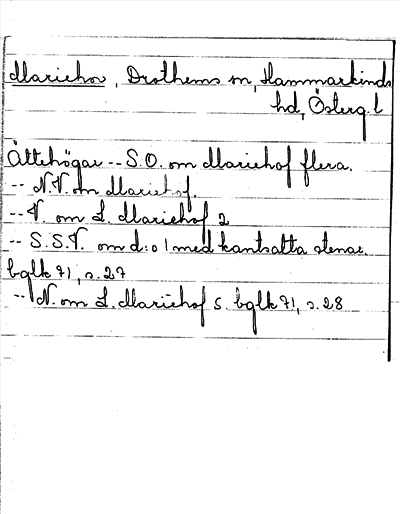 Mariehov, Drothems sn, Hammarkinds
hd, Österg.l
Ättehögar -- S.O. om Mariehof flera.
-- N.V. om Mariehof.
-- V. om L. Mariehof 2
-- S.S.V. om d:o 1 med kantsatta stenar.
bglk 71, s. 27
-- N. om L. Mariehof 5. bglk 71, s. 28